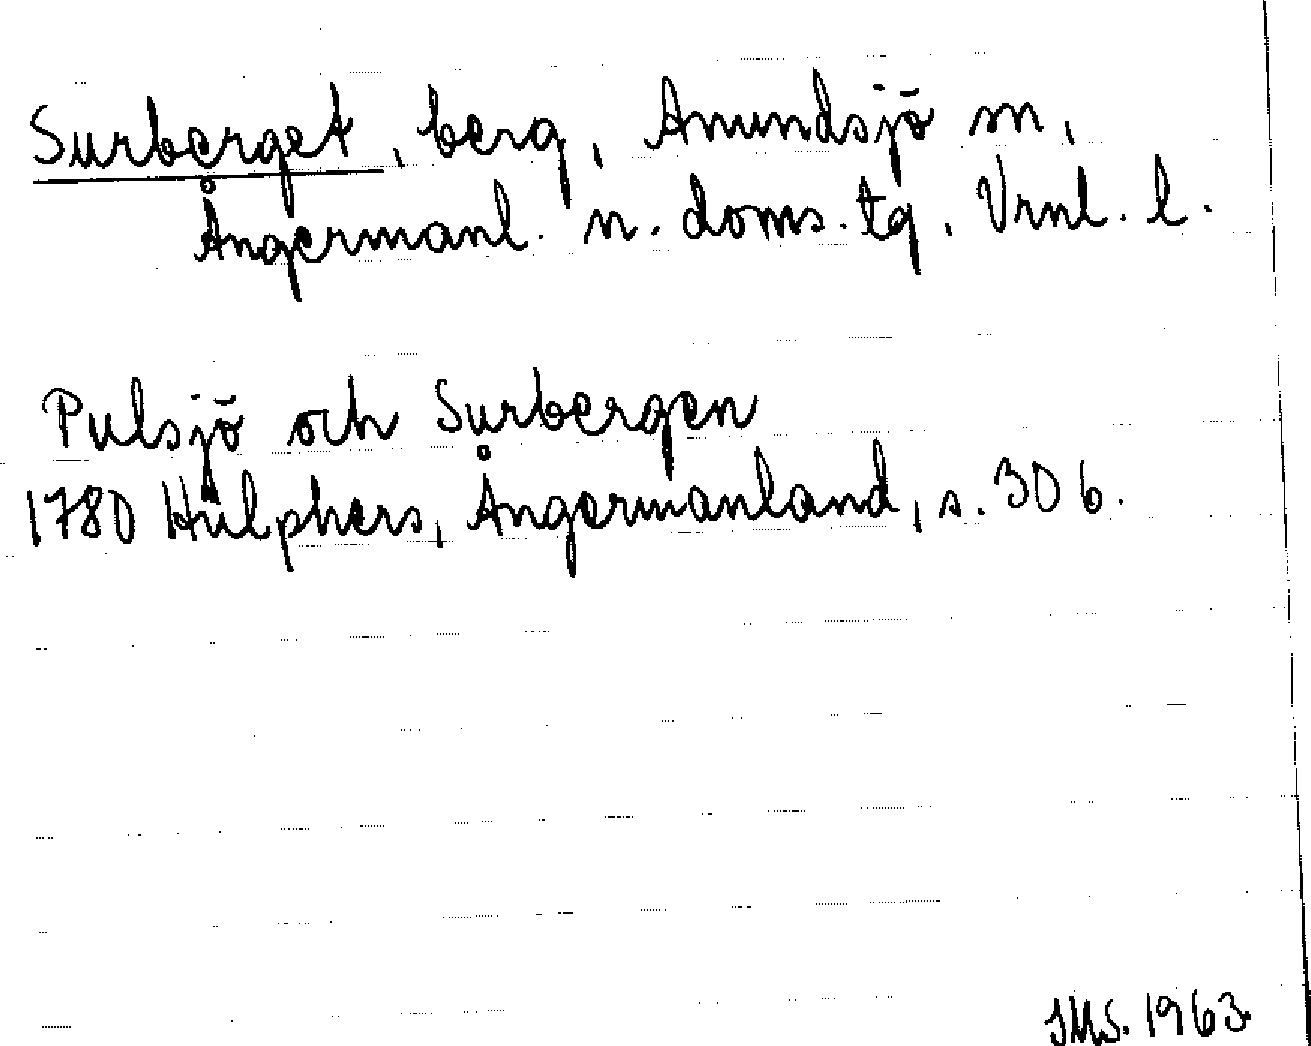 Surberget, berg, Anundsjö sn,
Ångermanl. n. doms. tg, Vrnl. l.
Pulsjö och Surbergen
1780 Hülphers, Ångermanland, s. 306.
JMS. 1963.